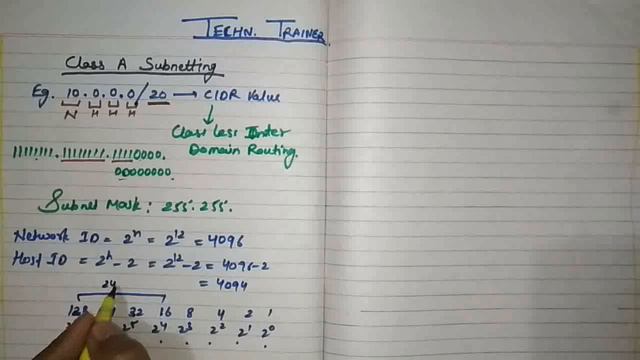 TECHN. TRAINER
Class A Subnetting
Eg. 10.0.0.0/20 → CIDR Value
N H H H
Class Less Inter
Domain Routing.
11111111.11111111.11110000.
00000000
Subnet Mask: 255.255.
Network ID = 2ⁿ = 2¹² = 4096
Host ID = 2ʰ - 2 = 2¹² - 2 = 4096 - 2
= 4094
24
128 32 16 8 4 2 1
2⁵ 2⁴ 2³ 2² 2¹ 2⁰